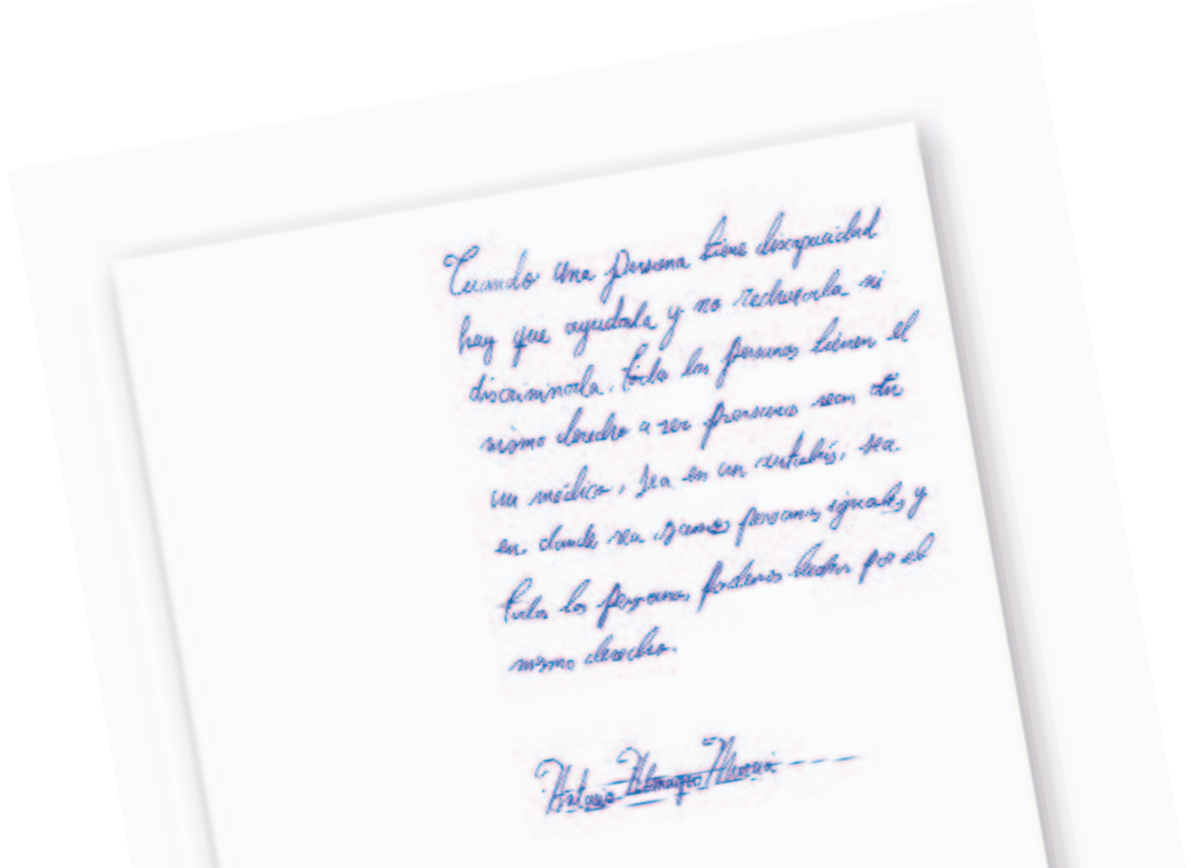 Cuando una persona tiene discapacidad
hay que ayudarla y no rechazarla ni
discriminarla. Todas las personas tienen el
mismo derecho a ser personas sean
un médico, sea en un autobús, sea
en donde sea somos personas iguales, y
todas las personas podemos luchar por el
mismo derecho.
Antonio Almagro